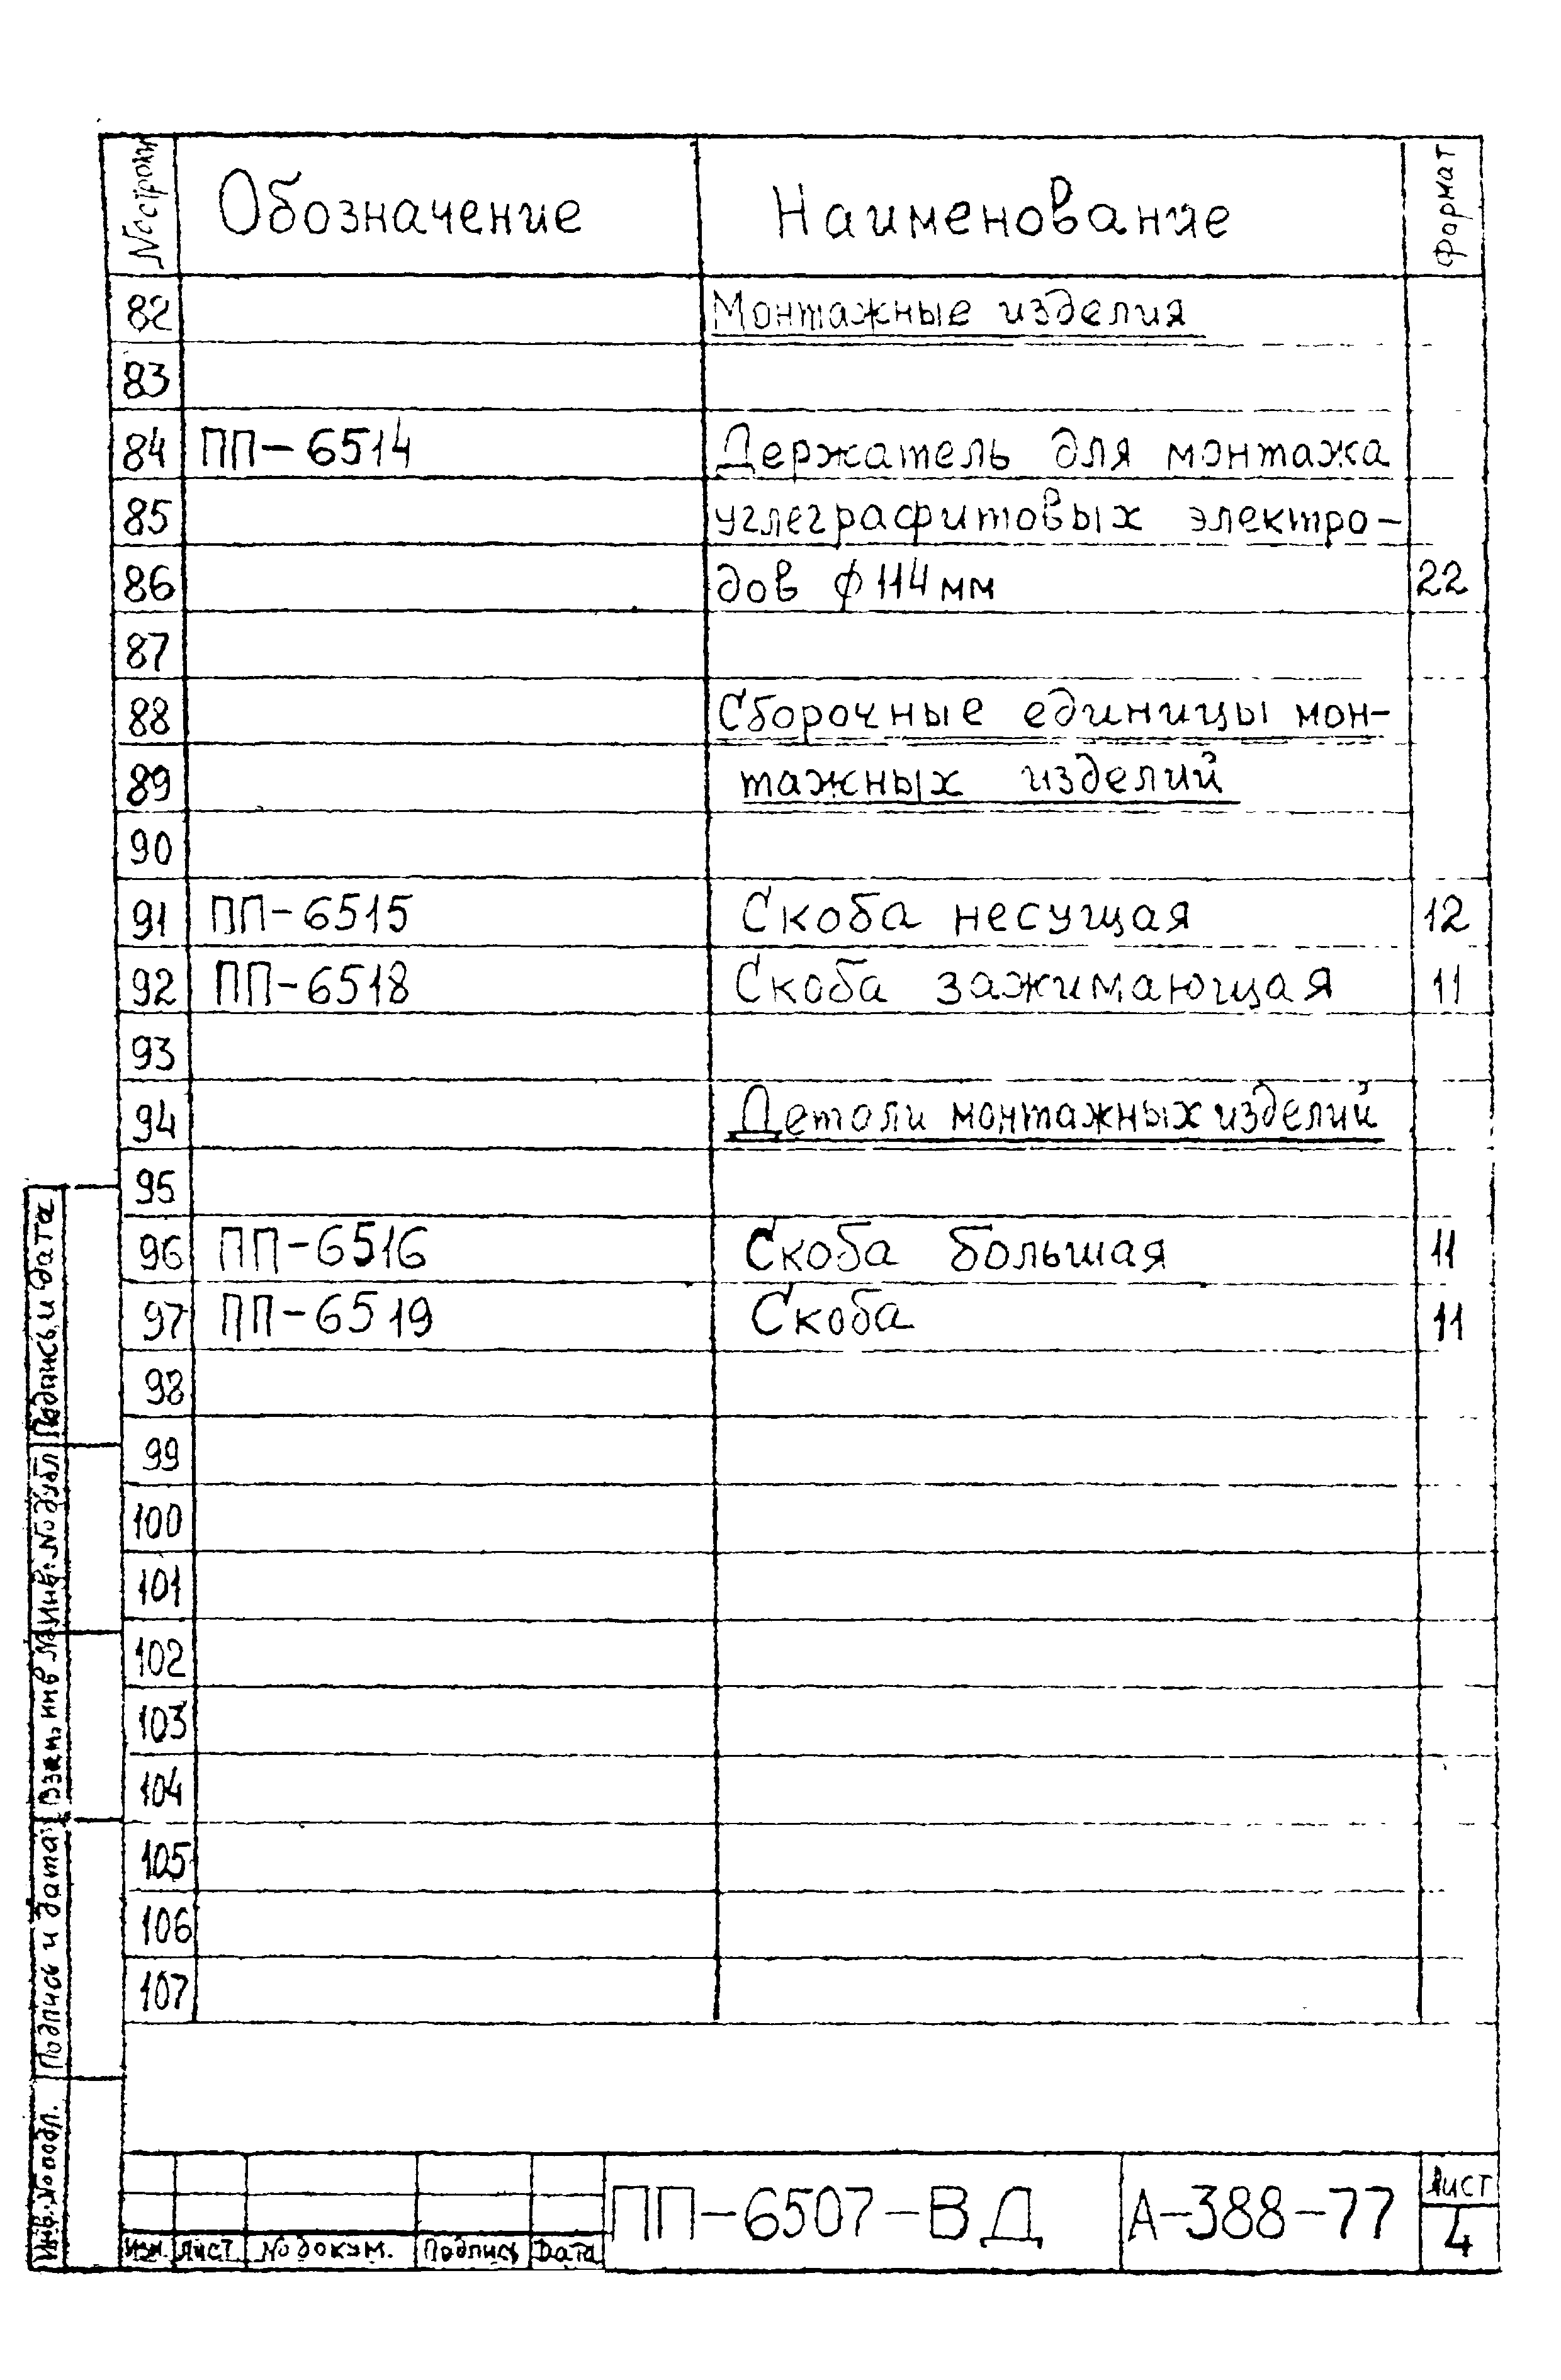 № строки Обозначение Наименование Формат
82 Монтажные изделия
83
84 ПП-6514 Держатель для монтажа
85 углеграфитовых электро-
86 дов ϕ 114 мм 22
87
88 Сборочные единицы мон-
89 тажных изделий
90
91 ПП-6515 Скоба несущая 12
92 ПП-6518 Скоба зажимающая 11
93
94 Детали монтажных изделий
95
96 ПП-6516 Скоба большая 11
97 ПП-6519 Скоба 11
98
99
100
101
102
103
104
105
106
107
Подпись и дата
Инв. № дубл
Взам. инв №
Подпись и дата
Инв. № подл.
Изм. Лист № докум. Подпись Дата
ПП-6507-ВД А-388-77 Лист
4